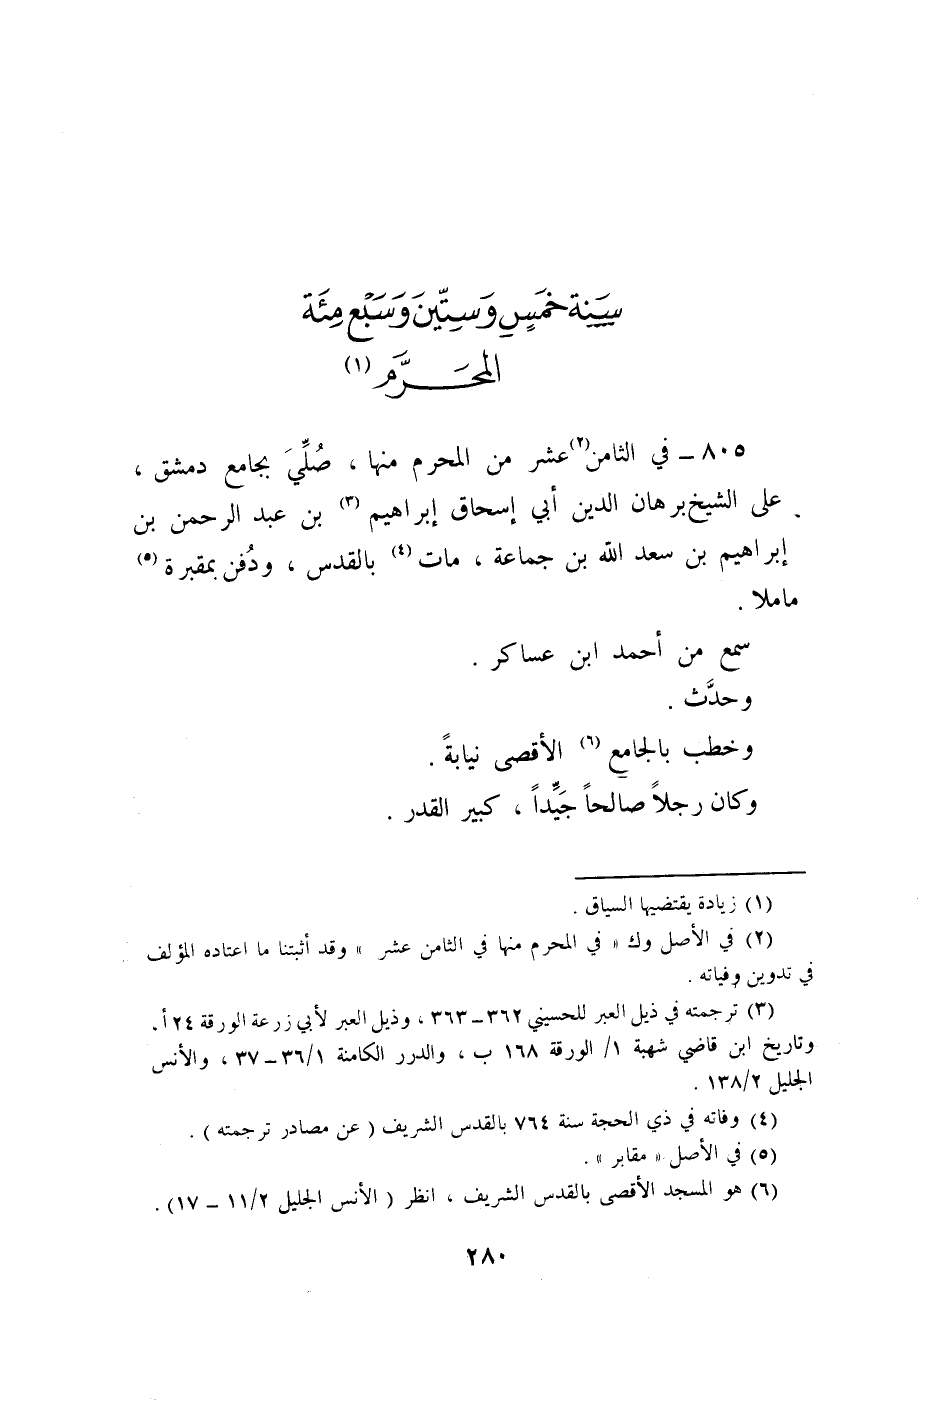 سَنَة خَمسٍ وَسِتِّينَ وَسَبْع مِئَة
المحَرَّم (١)
٨٠٥ ـ في الثامن(٢) عشر من المحرم منها ، صُلِّيَ بجامع دمشق ،
على الشيخ برهان الدين أبي إسحاق إبراهيم (٣) بن عبد الرحمن بن
إبراهيم بن سعد الله بن جماعة ، مات (٤) بالقدس ، ودُفن بمقبرة (٥)
ماملا .
سمع من أحمد ابن عساكر .
وحدَّث .
وخطب بالجامع (٦) الأقصى نيابةً .
وكان رجلاً صالحاً جَيِّداً ، كبير القدر .
(١) زيادة يقتضيها السياق .
(٢) في الأصل وك « في المحرم منها في الثامن عشر » وقد أثبتنا ما اعتاده المؤلف
في تدوين وفياته .
(٣) ترجمته في ذيل العبر للحسيني ٣٦٢ ـ ٣٦٣ ، وذيل العبر لأبي زرعة الورقة ٢٤ أ .
وتاريخ ابن قاضي شهبة ١/ الورقة ١٦٨ ب ، والدرر الكامنة ٣٦/١ ـ ٣٧ ، والأنس
الجليل ١٣٨/٢ .
(٤) وفاته في ذي الحجة سنة ٧٦٤ بالقدس الشريف ( عن مصادر ترجمته ) .
(٥) في الأصل « مقابر » .
(٦) هو المسجد الأقصى بالقدس الشريف ، انظر ( الأنس الجليل ١١/٢ ـ ١٧) .
٢٨٠